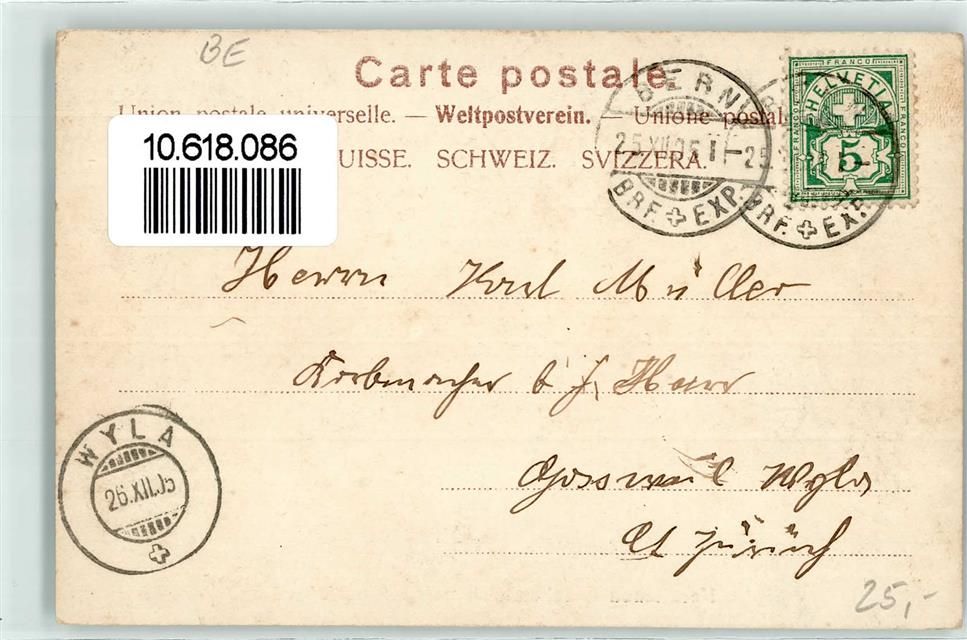 BE
Carte postale
Union postale universelle. — Weltpostverein. — Unione postale
10.618.086
UISSE. SCHWEIZ. SVIZZERA.
BERN
25.XII.05
BRF. EXP.
BRF. EXP.
FRANCO
HELVETIA
5
FRANCO
FRANCO
Herrn Karl Müller
Korbmacher b J. Haus
Gossweil Wyla
Ct Zürich
WYLA
26.XII.05
25,-